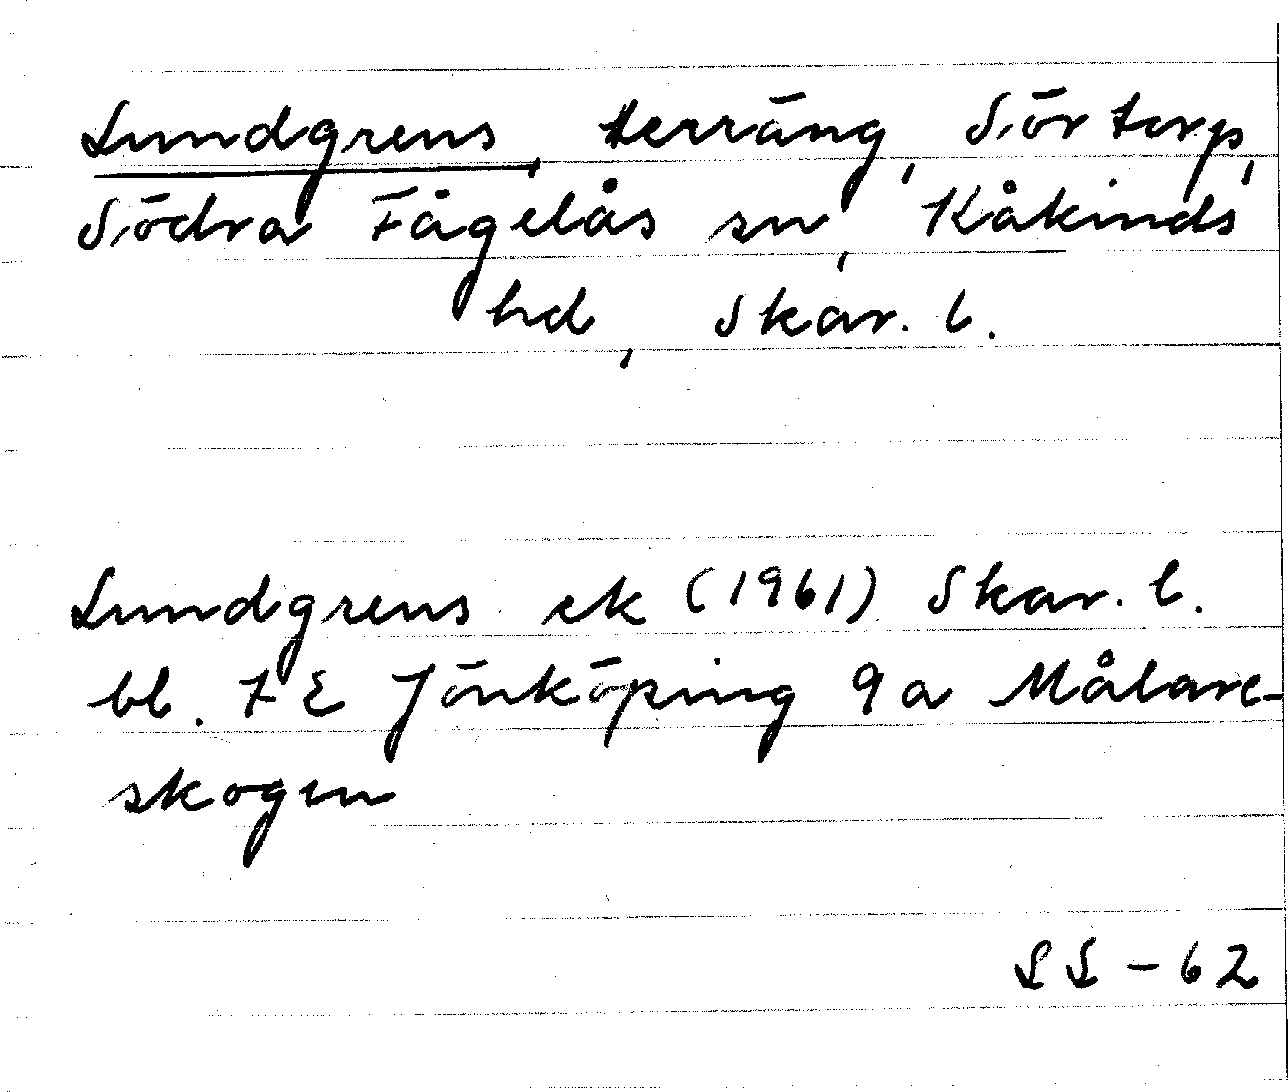 Lundgrens, terräng, Sörtorp,
Södra Fågelås sn, Kåkinds
hd, Skar. l.
Lundgrens ek (1961) Skar. l.
bl. 7 E Jönköping 9a Målare-
skogen
SL - 62